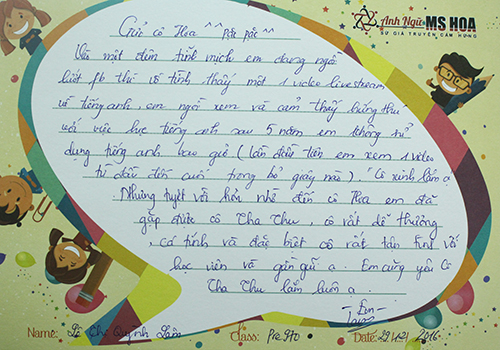 Gửi cô Hoa ^^ pặc pặc ^^
Vào một đêm tĩnh mịch em đang ngồi
lướt fb thì vô tình thấy một 1 video livestream
về tiếng anh, em ngồi xem và cảm thấy hứng thú
với việc học tiếng anh sau 5 năm em không sử
dụng tiếng anh bao giờ (lần đầu tiên em xem 1 video
từ đầu đến cuối trong bộ giấy nào) Cô xinh lắm ạ
Nhưng tuyệt vời hơn nhờ đến cô Hoa em đã
gặp được cô Tha Thu, cô rất dễ thương
, cá tính và đặc biệt cô rất tâm lý với
học viên và gần gũi ạ. Em cũng yêu Cô
Tha Thu lắm luôn ạ.
Anh Ngữ MS HOA
SỨ GIẢ TRUYỀN CẢM HỨNG
Name: Lê Quỳnh
Class: Pre
Date: 2016